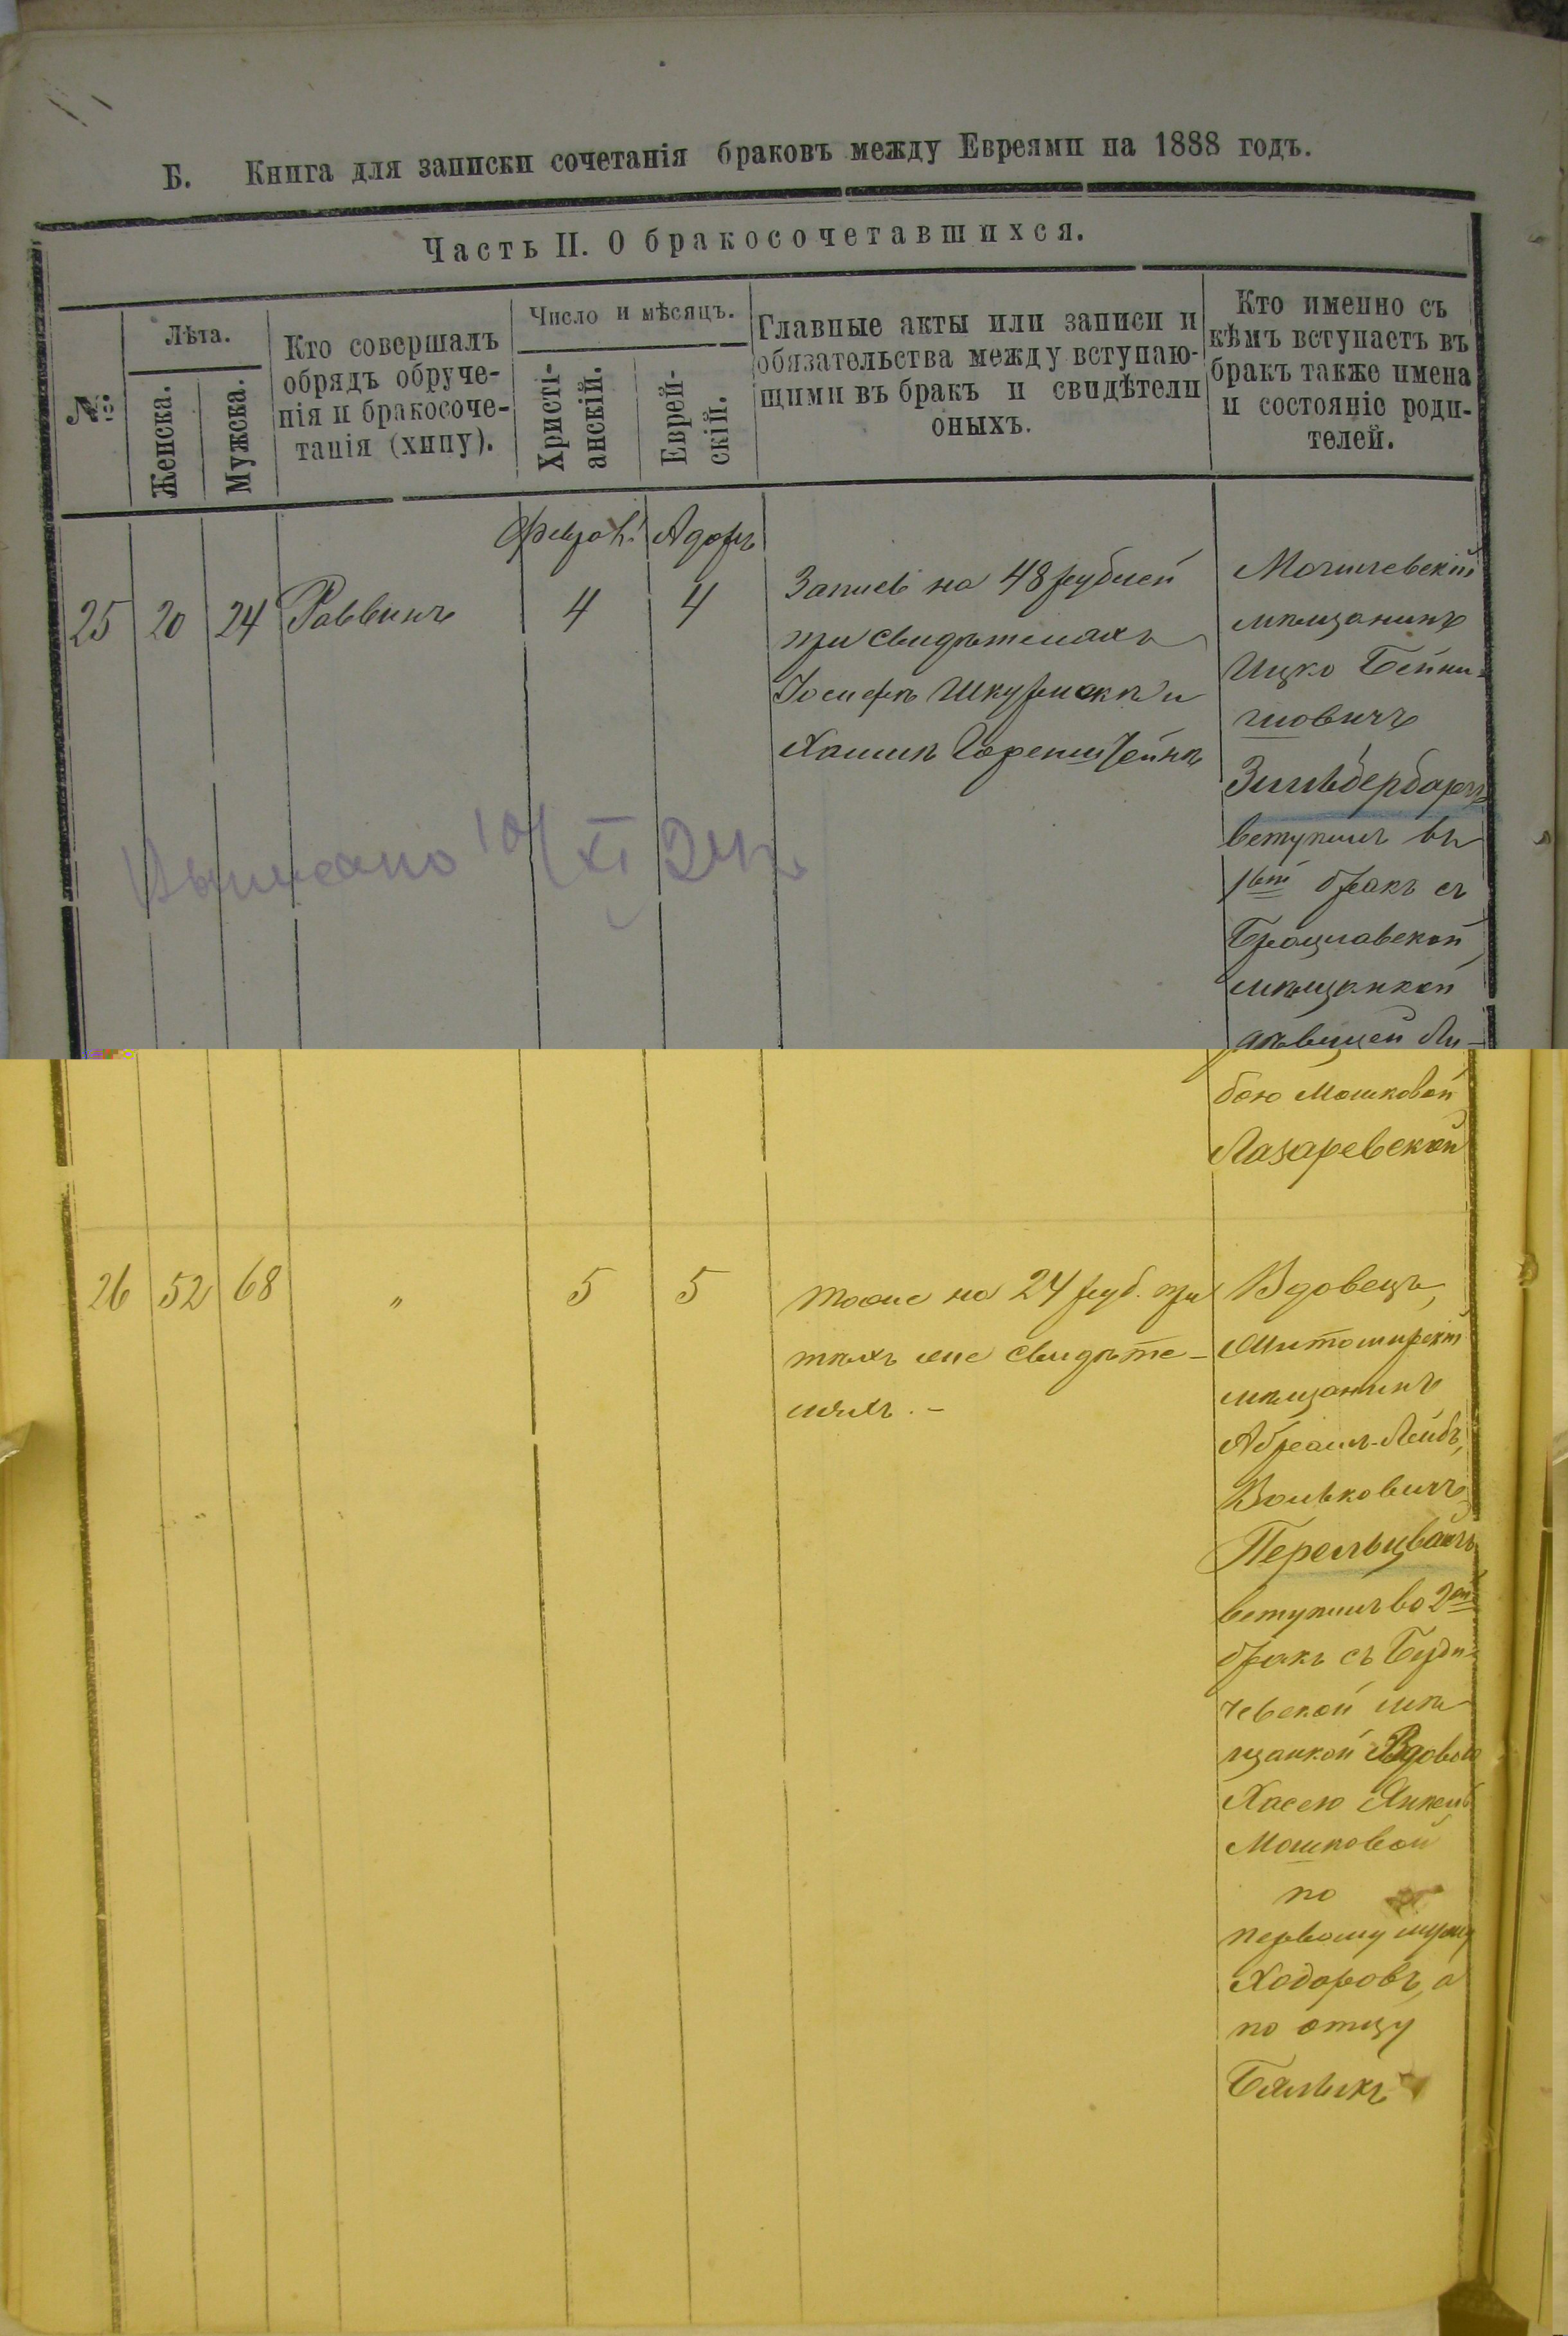 Б. Книга для записки сочетанія браковъ между Евреями на 1888 годъ.
Часть II. О бракосочетавшихся.
№
Лѣта.
Женска.
Мужска.
Кто совершалъ
обрядъ обруче-
нія и бракосоче-
танія (хипу).
Число и мѣсяцъ.
Христі-
анскій.
Еврей-
скій.
Главные акты или записи и
обязательства между вступаю-
щими въ бракъ и свидѣтели
оныхъ.
Кто именно съ
кѣмъ вступаетъ въ
бракъ также имена
и состояніе роди-
телей.
Адаръ
25 20 24 Раввинъ 4 4
Запись на 48 рублей
при свидѣтеляхъ
Іосифъ Шкурникъ и
Хаимъ
мѣщанинъ
Ицко Бейни-
шовичъ
Зильбербергъ
вступилъ въ
1вый бракъ съ
Брацлавской
мѣщанкой
дѣвицей Ли-
бою Мошковой
Лазаревской
Выписано 10/XI 24 г.
26 52 68 " 5 5
тоже на 24 руб. при
тѣхъ же свидѣте-
ляхъ. –
Вдовецъ,
Житомирскій
мѣщанинъ
Абрамъ-Лейбъ
Вольковичъ
Перельцвайгъ
вступилъ во 2ой
бракъ съ Берди-
чевской мѣ-
щанкой Вдовою
Хасею Янкель
Мошковой
по
первому мужу
Ходоровъ, а
по отцу
Бяликъ